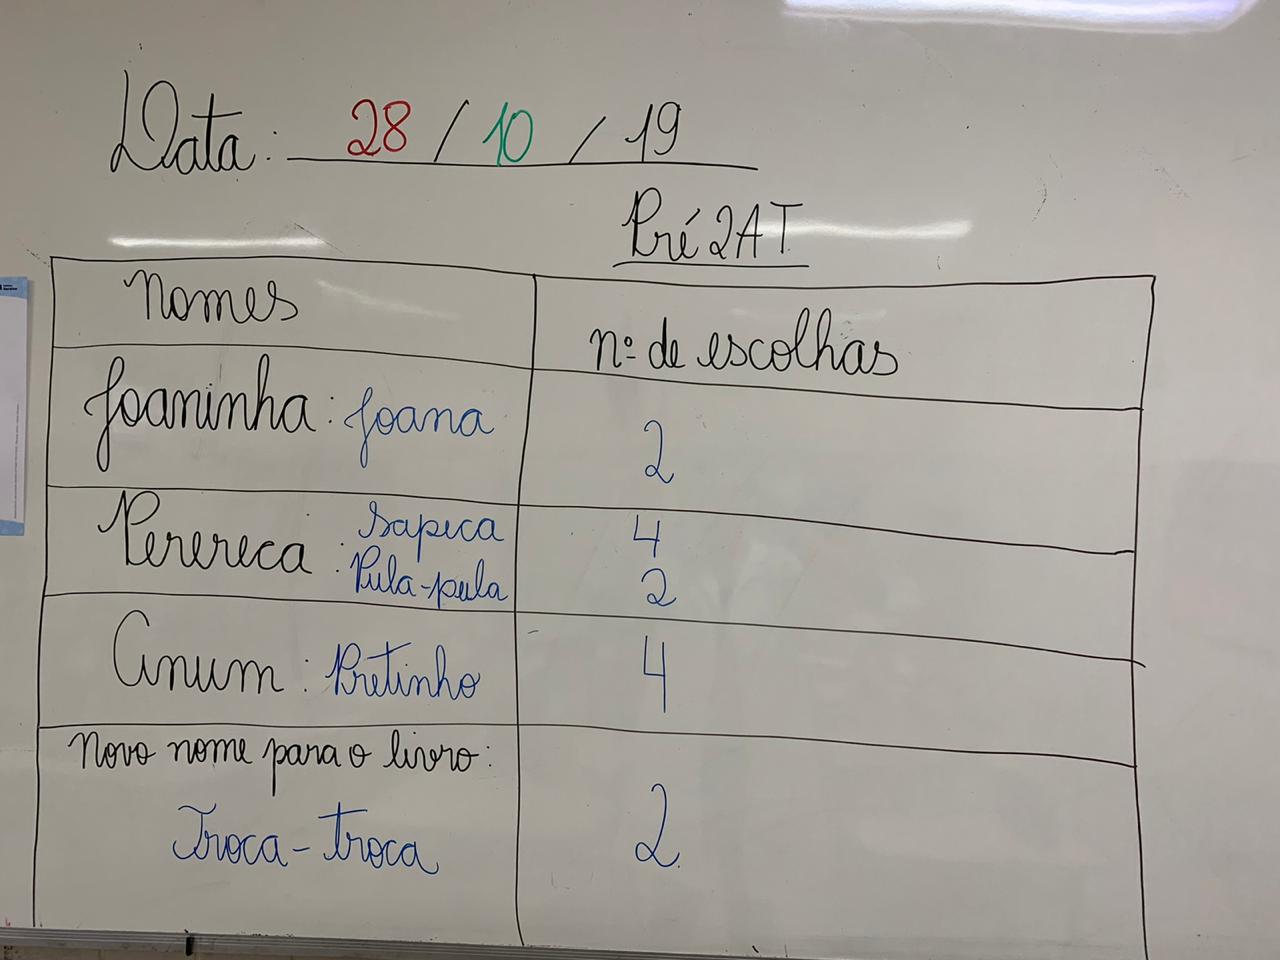 Data: 28 / 10 / 19
Pré 2AT
Nomes
nº de escolhas
Joaninha: Joana
2
Perereca: Sapeca
4
Pula-pula
2
Anum: Pretinho
4
Novo nome para o livro:
Troca-troca
2